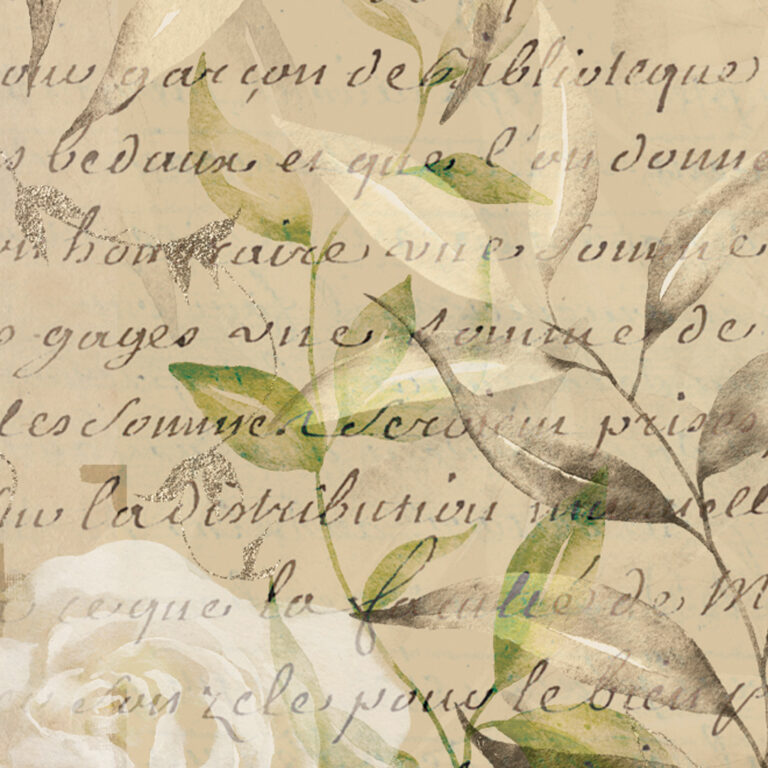 garçon de biblioteque
bedaux et que l'on donne
honoraire une somme
gages une somme de
les sommes seroient prises
la distribution
ce que la faculté de M
son zele pour le bien p